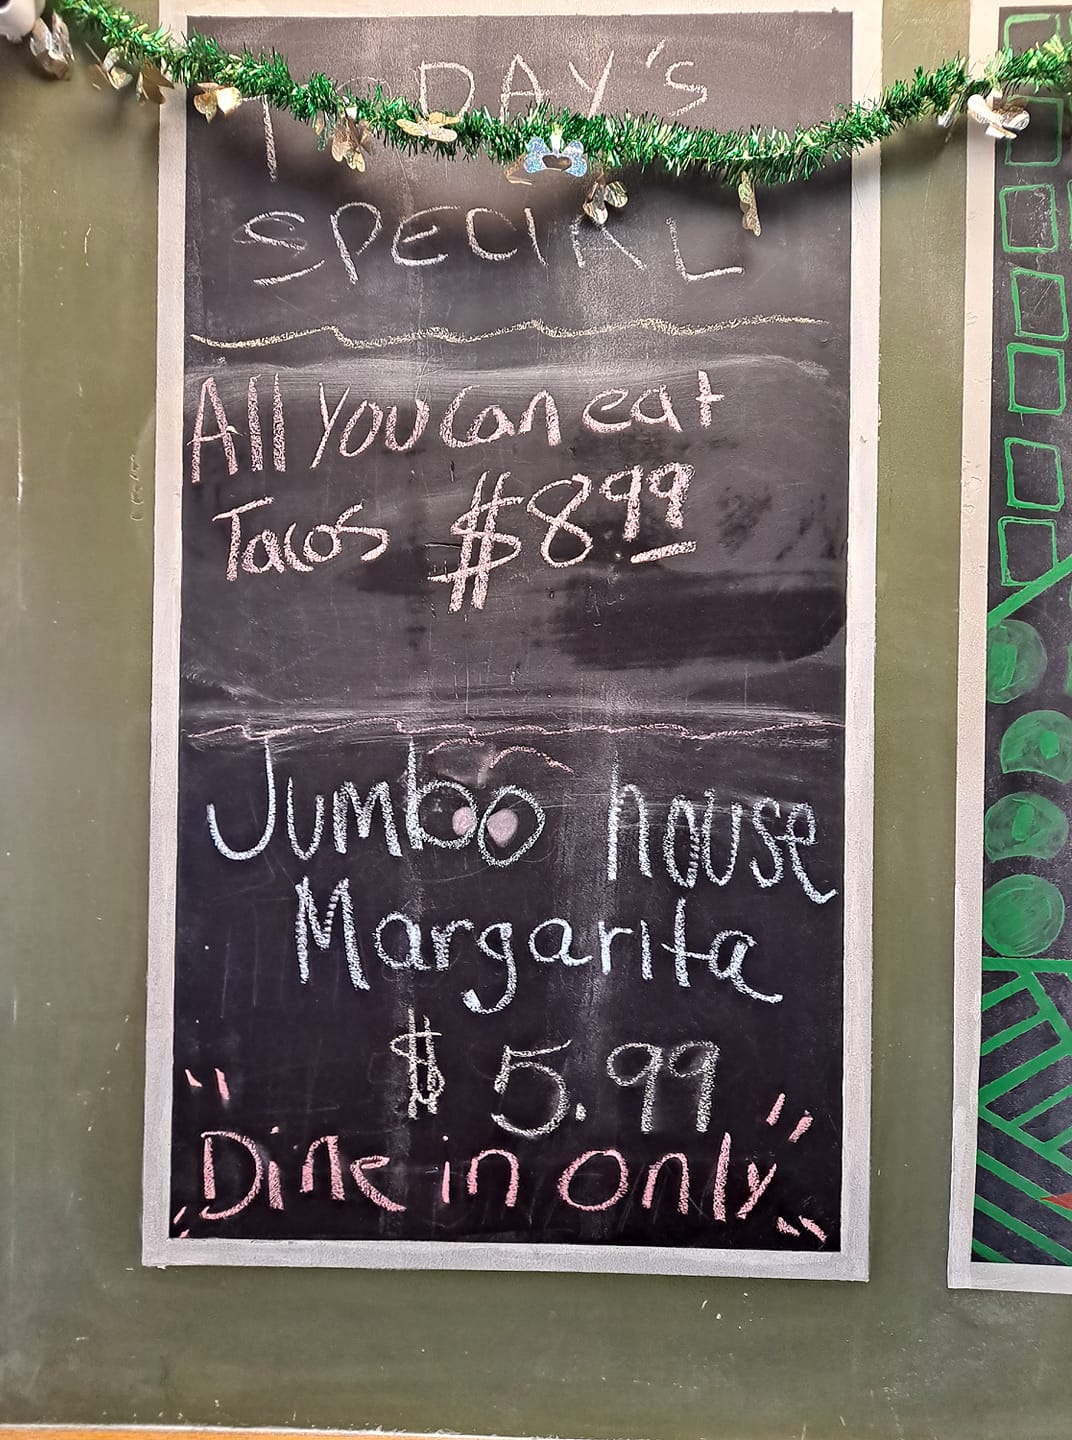 TODAY'S
SPECIAL
All you can eat
Tacos $8 99
Jumbo house
Margarita
$ 5.99
"Dine in only"